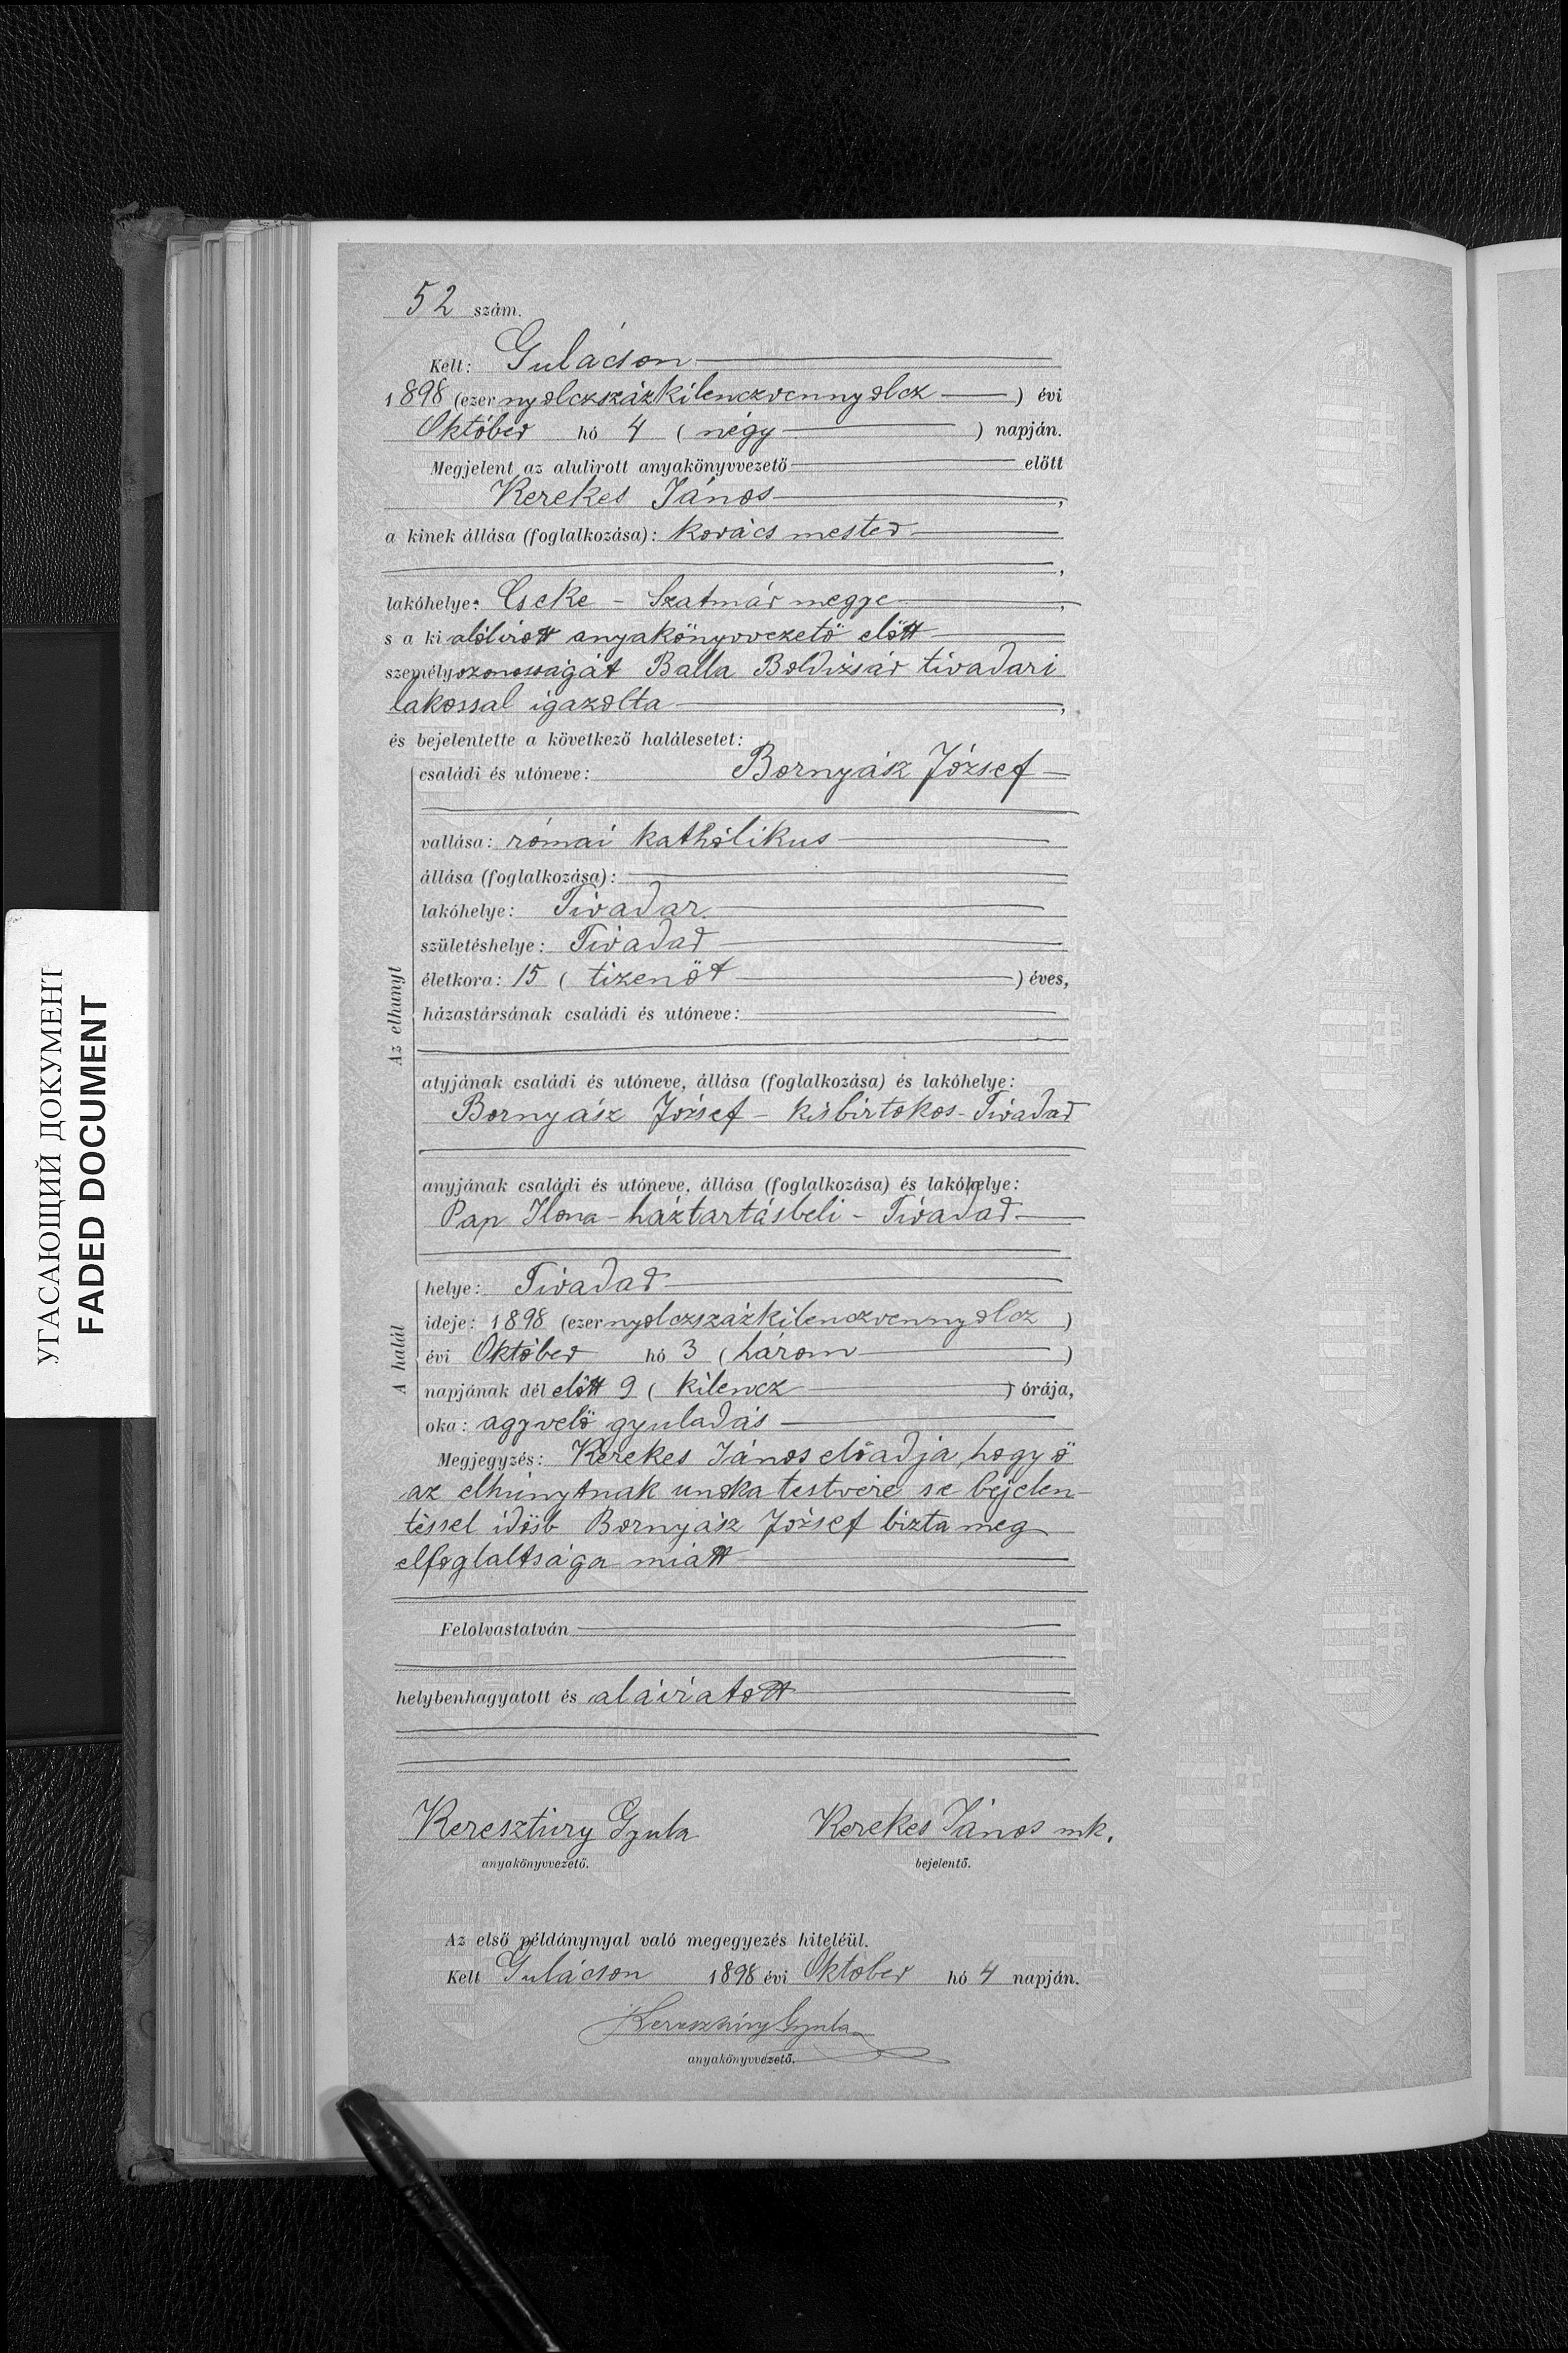 52 szám.
Kelt: Gulácson
1898 (ezer nyolczszázkilenczvennyolcz) évi
Október hó 4 (négy) napján.
Megjelent az alulirott anyakönyvvezető előtt
Kerekes János,
a kinek állása (foglalkozása): kovács mester
,
lakóhelye: Cseke - Szatmár megye,
s a ki alólirott anyakönyvvezető előtt
személyazonosságát Balla Boldizsár tivadari
lakossal igazolta,
és bejelentette a következő halálesetet:
Az elhunyt
családi és utóneve: Bornyász József
vallása: római katholikus
állása (foglalkozása):
lakóhelye: Tivadar.
születéshelye: Tivadar
életkora: 15 (tizenöt) éves,
házastársának családi és utóneve:
atyjának családi és utóneve, állása (foglalkozása) és lakóhelye:
Bornyász József - kisbirtokos - Tivadar
anyjának családi és utóneve, állása (foglalkozása) és lakóhelye:
Pap Ilona - háztartásbeli - Tivadar
A halál
helye: Tivadar
ideje: 1898 (ezer nyolczszázkilenczvennyolcz)
évi Október hó 3 (három)
napjának dél előtt 9 (kilencz) órája,
oka: agyvelő gyuladás
Megjegyzés: Kerekes János előadja, hogy ő
az elhúnytnak unoka testvére s e bejelen-
téssel idősb Bornyász József bizta meg
elfoglaltsága miatt
Felolvastatván
helybenhagyatott és aláiratott
Keresztúry Gyula Kerekes János mk.
anyakönyvvezető. bejelentő.
Az első példánynyal való megegyezés hiteléül.
Kelt Gulácson 1898 évi Október hó 4 napján.
Keresztúry Gyula
anyakönyvvezető.
УГАСАЮЩИЙ ДОКУМЕНТ
FADED DOCUMENT